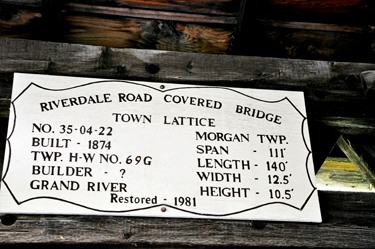 RIVERDALE ROAD COVERED BRIDGE
TOWN LATTICE
NO. 35-04-22
BUILT - 1874
TWP. H-W NO. 69G
BUILDER - ?
GRAND RIVER
MORGAN TWP.
SPAN - 111'
LENGTH - 140'
WIDTH - 12.5'
HEIGHT - 10.5'
Restored - 1981